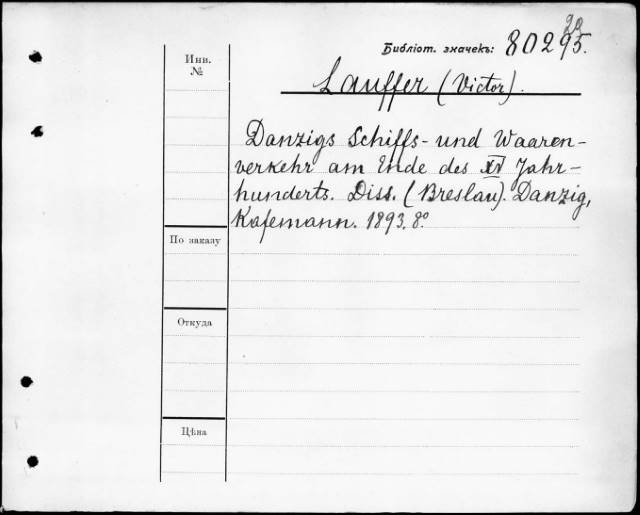 22
Библіот. значекъ: 80295.
Инв.
№
Lauffer (Victor).
Danzigs Schiffs- und Waaren-
verkehr am Ende des XV Jahr-
hunderts. Diss. (Breslau). Danzig,
Kafemann. 1893. 8º
По заказу
Откуда
Цѣна